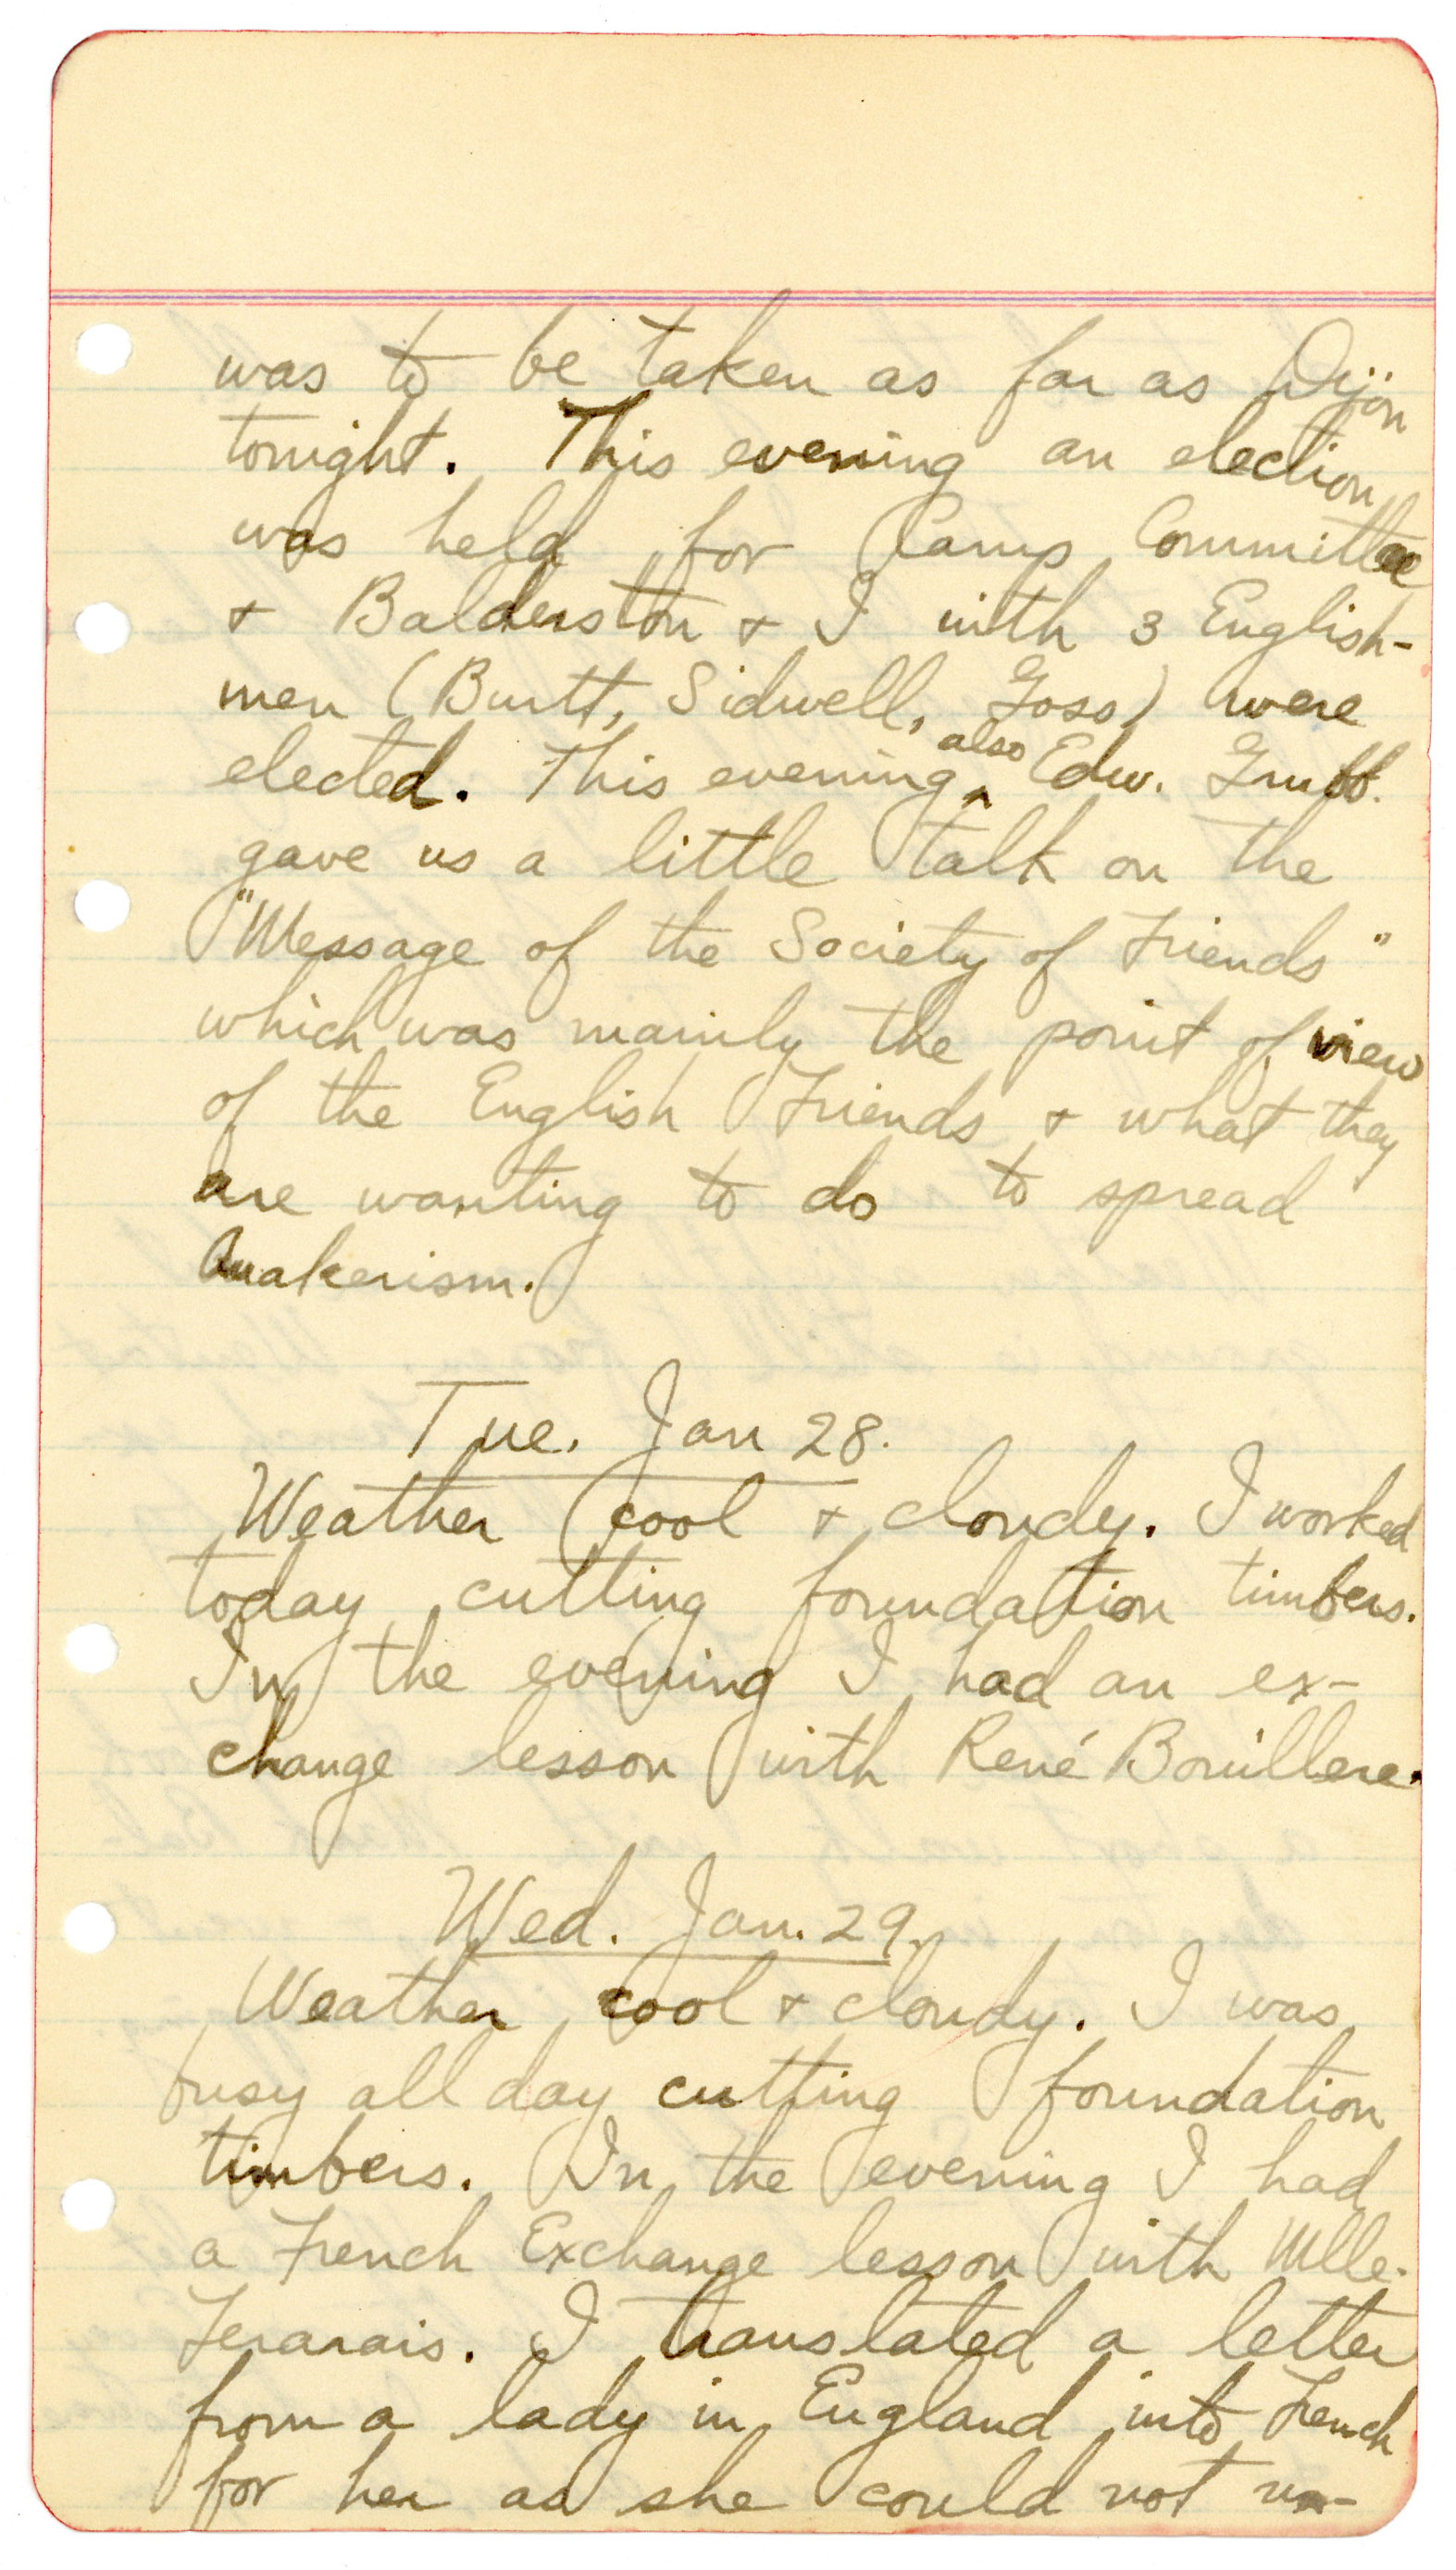 was to be taken as far as Dijon
tonight. This evening an election
was held for Camp Committee
+ Balderston + I with 3 English-
men (Burtt, Sidwell, Goss) were
elected. This evening ^also Edw. 
gave us a little talk on the
"Message of the Society of Friends"
which was mainly the point of view
of the English Friends + what they
are wanting to do to spread
Quakerism.
Tue. Jan 28.
Weather cool + cloudy. I worked
today cutting foundation timbers.
In the evening I had an ex-
change lesson with René Bouillere.
Wed. Jan. 29.
Weather cool + cloudy. I was
busy all day cutting foundation
timbers. In the evening I had
a French Exchange lesson with Mlle.
I translated a letter
from a lady in England into French
for her as she could not un-